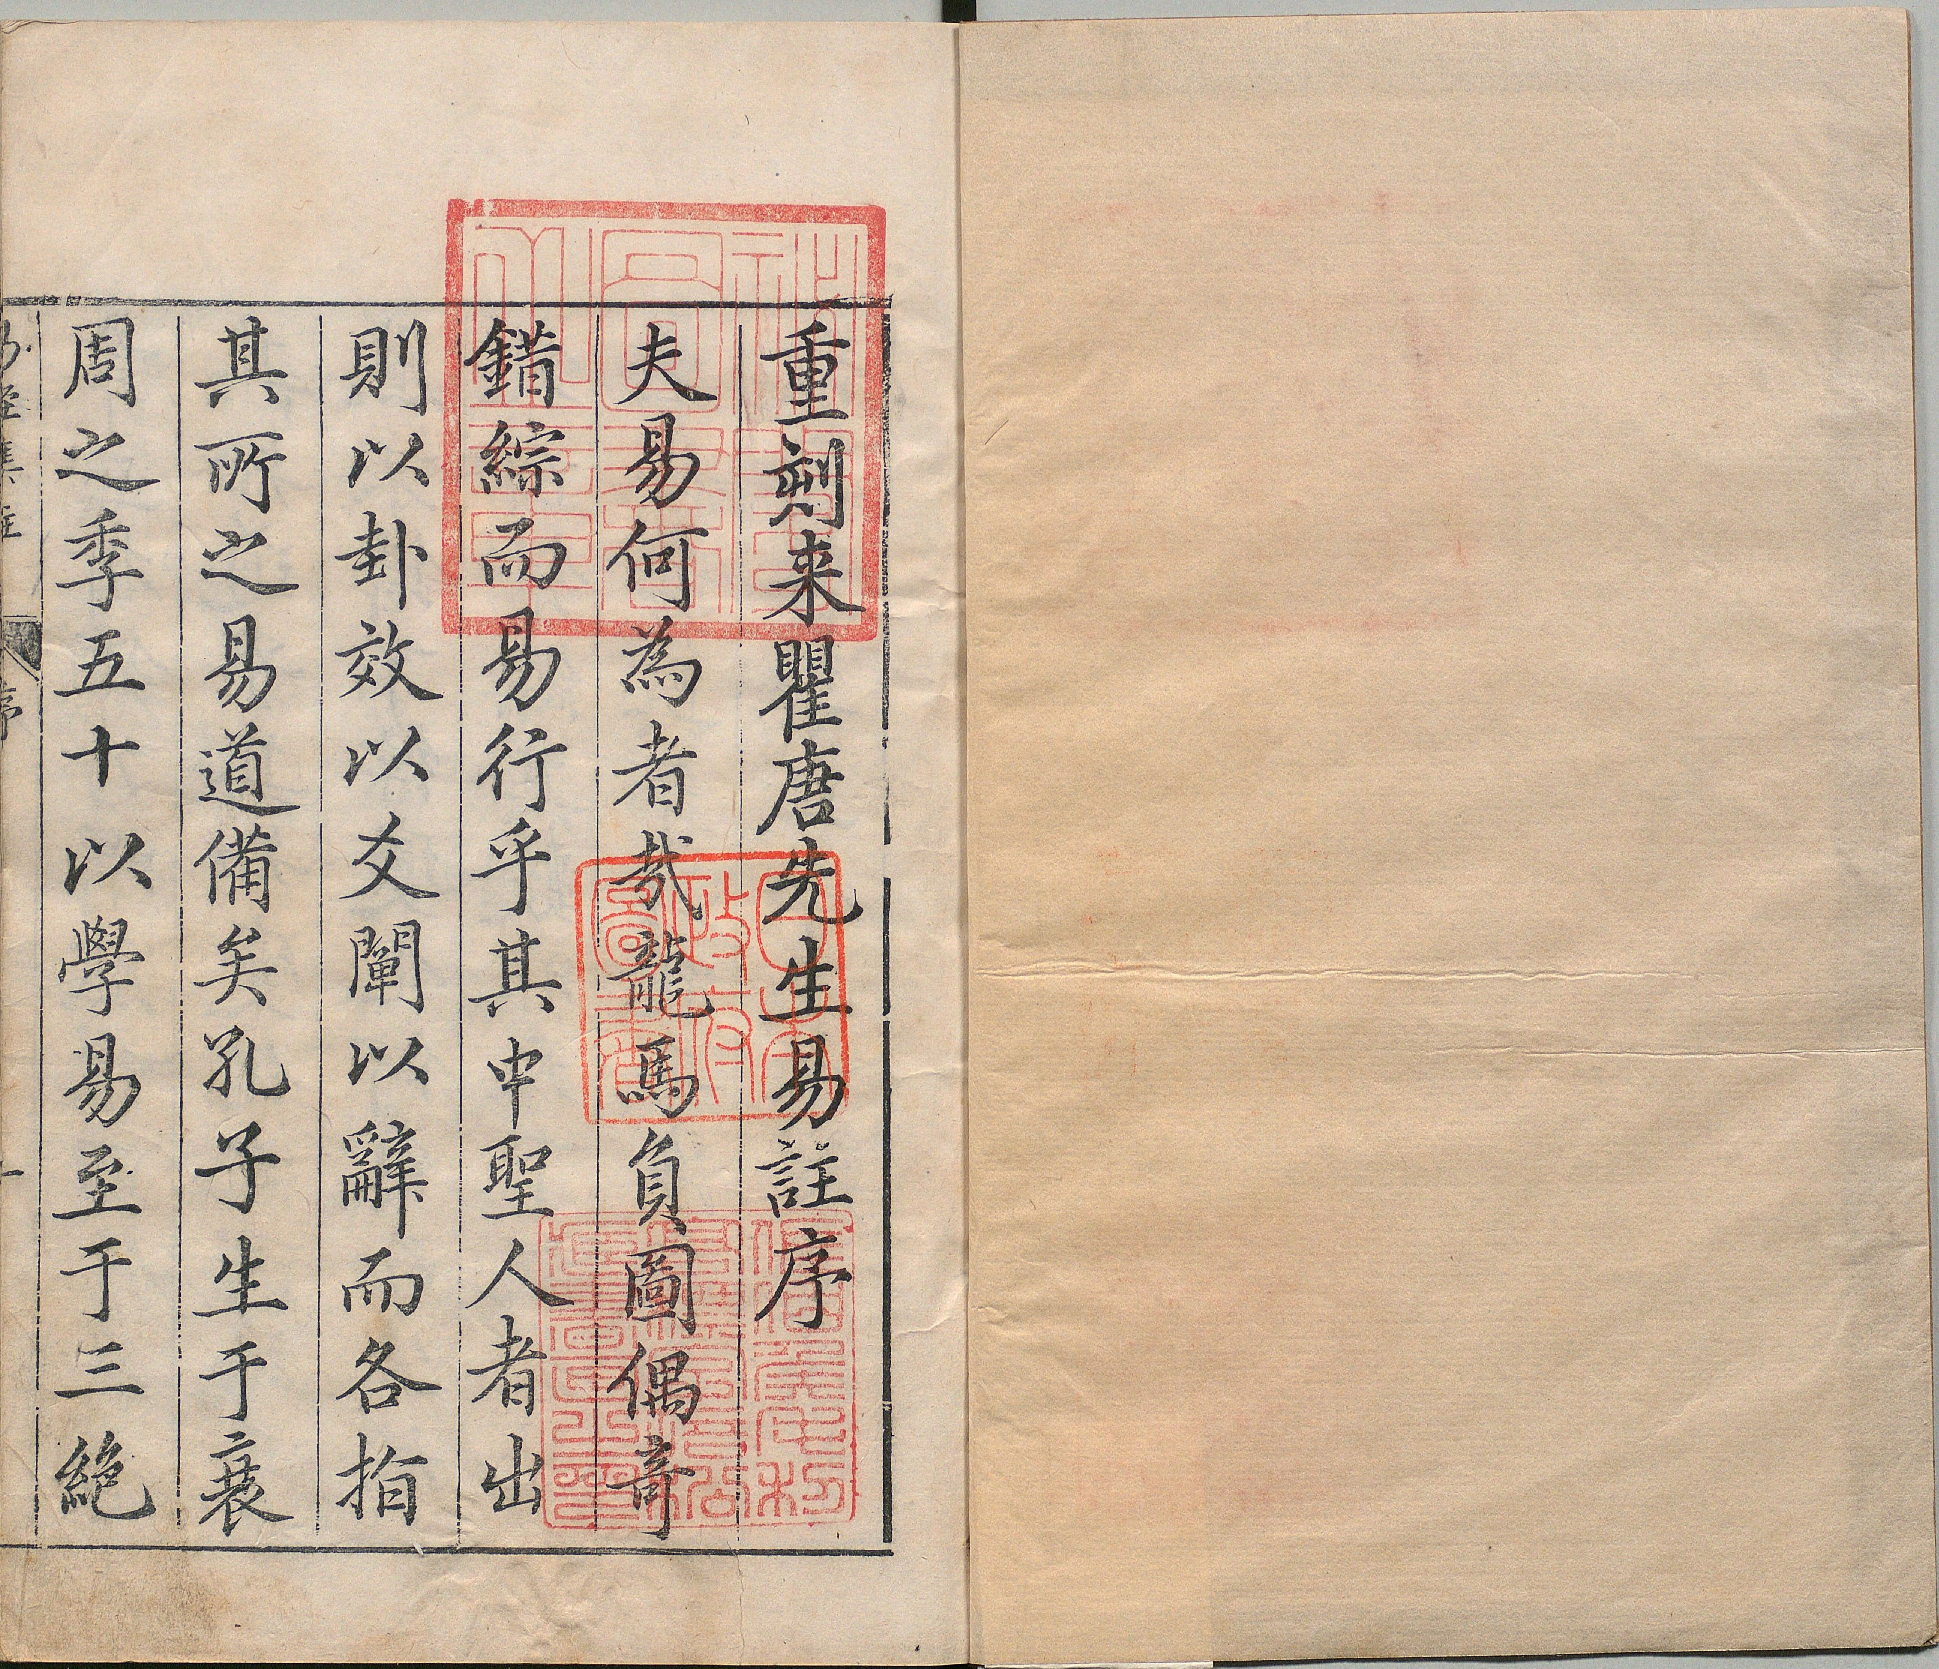 重刻来瞿唐先生易註序
夫易何為者哉龍馬負圖偶竒
錯綜而易行乎其中聖人者出
則以卦效以爻闡以辭而各指
其所之易道備矣孔子生于衰
周之季五十以學易至于三絶
易經集註
序
一
日本政府圖書